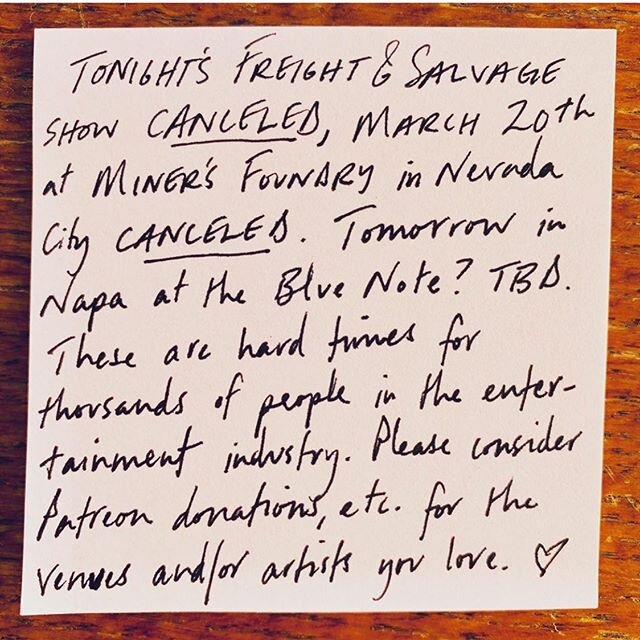 TONIGHT'S FREIGHT & SALVAGE
SHOW CANCELED, MARCH 20th
at MINER'S FOUNDRY in Nevada
City CANCELED. Tomorrow in
Napa at the Blue Note? TBD.
These are hard times for
thousands of people in the enter-
tainment industry. Please consider
Patreon donations, etc. for the
venues and/or artists you love. ♡